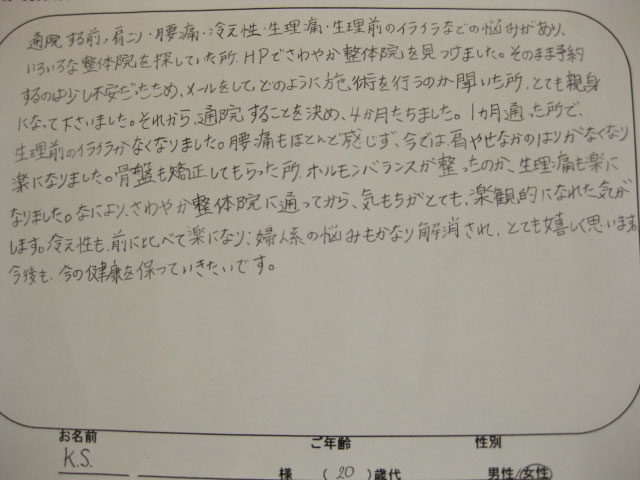 通院する前、肩こり・腰痛・冷え性・生理痛・生理前のイライラなどの悩みがあり、
いろいろな整体院を探していた所、HPでさわやか整体院を見つけました。そのまま予約
するのは少し不安だったため、メールをして、どのように施術を行うのか聞いた所、とても親身
になって下さいました。それから、通院することを決め、4か月たちました。1カ月通った所で、
生理前のイライラがなくなりました。腰痛もほとんど感じず、今では、肩やせなかのはりがなくなり
楽になりました。骨盤も矯正してもらった所、ホルモンバランスが整ったのか、生理痛も楽に
なりました。なにより、さわやか整体院に通ってから、気もちがとても、楽観的になれた気が
します。冷え性も、前に比べて楽になり、婦人系の悩みもかなり解消され、とても嬉しく思います。
今後も、今の健康を保っていきたいです。
お名前 ご年齢 性別
K.S. 様 (20)歳代 男性/女性